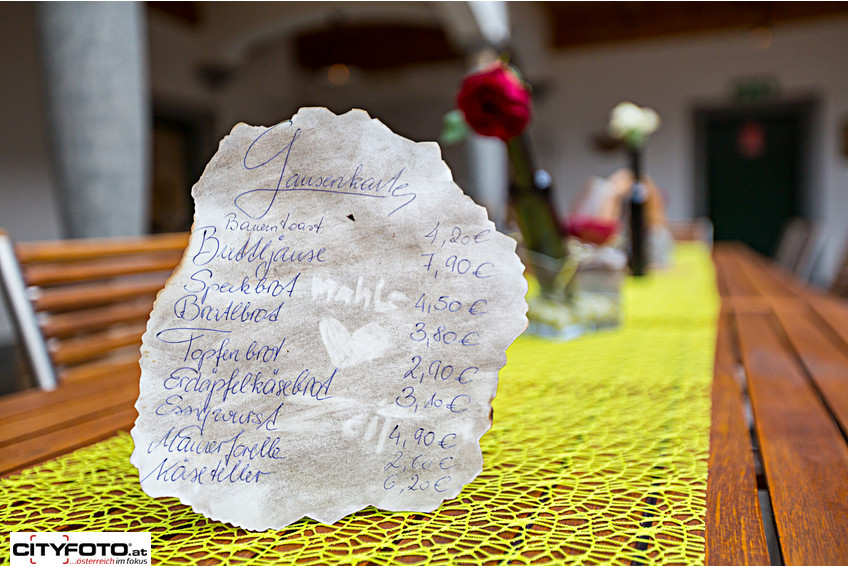 Jausenkarte
Bauerntoast 4,20€
Buddljause 7,90€
Speckbrot 4,50€
Bratlbrot 3,80€
Topfenbrot. 2,90€
Erdäpfelkäsebrot 3,10€
Essigwurst 4,90€
Maurerforelle 2,60€
Käseteller 6,20€
MahL
ZeiT
CITYFOTO.at
...österreich im fokus